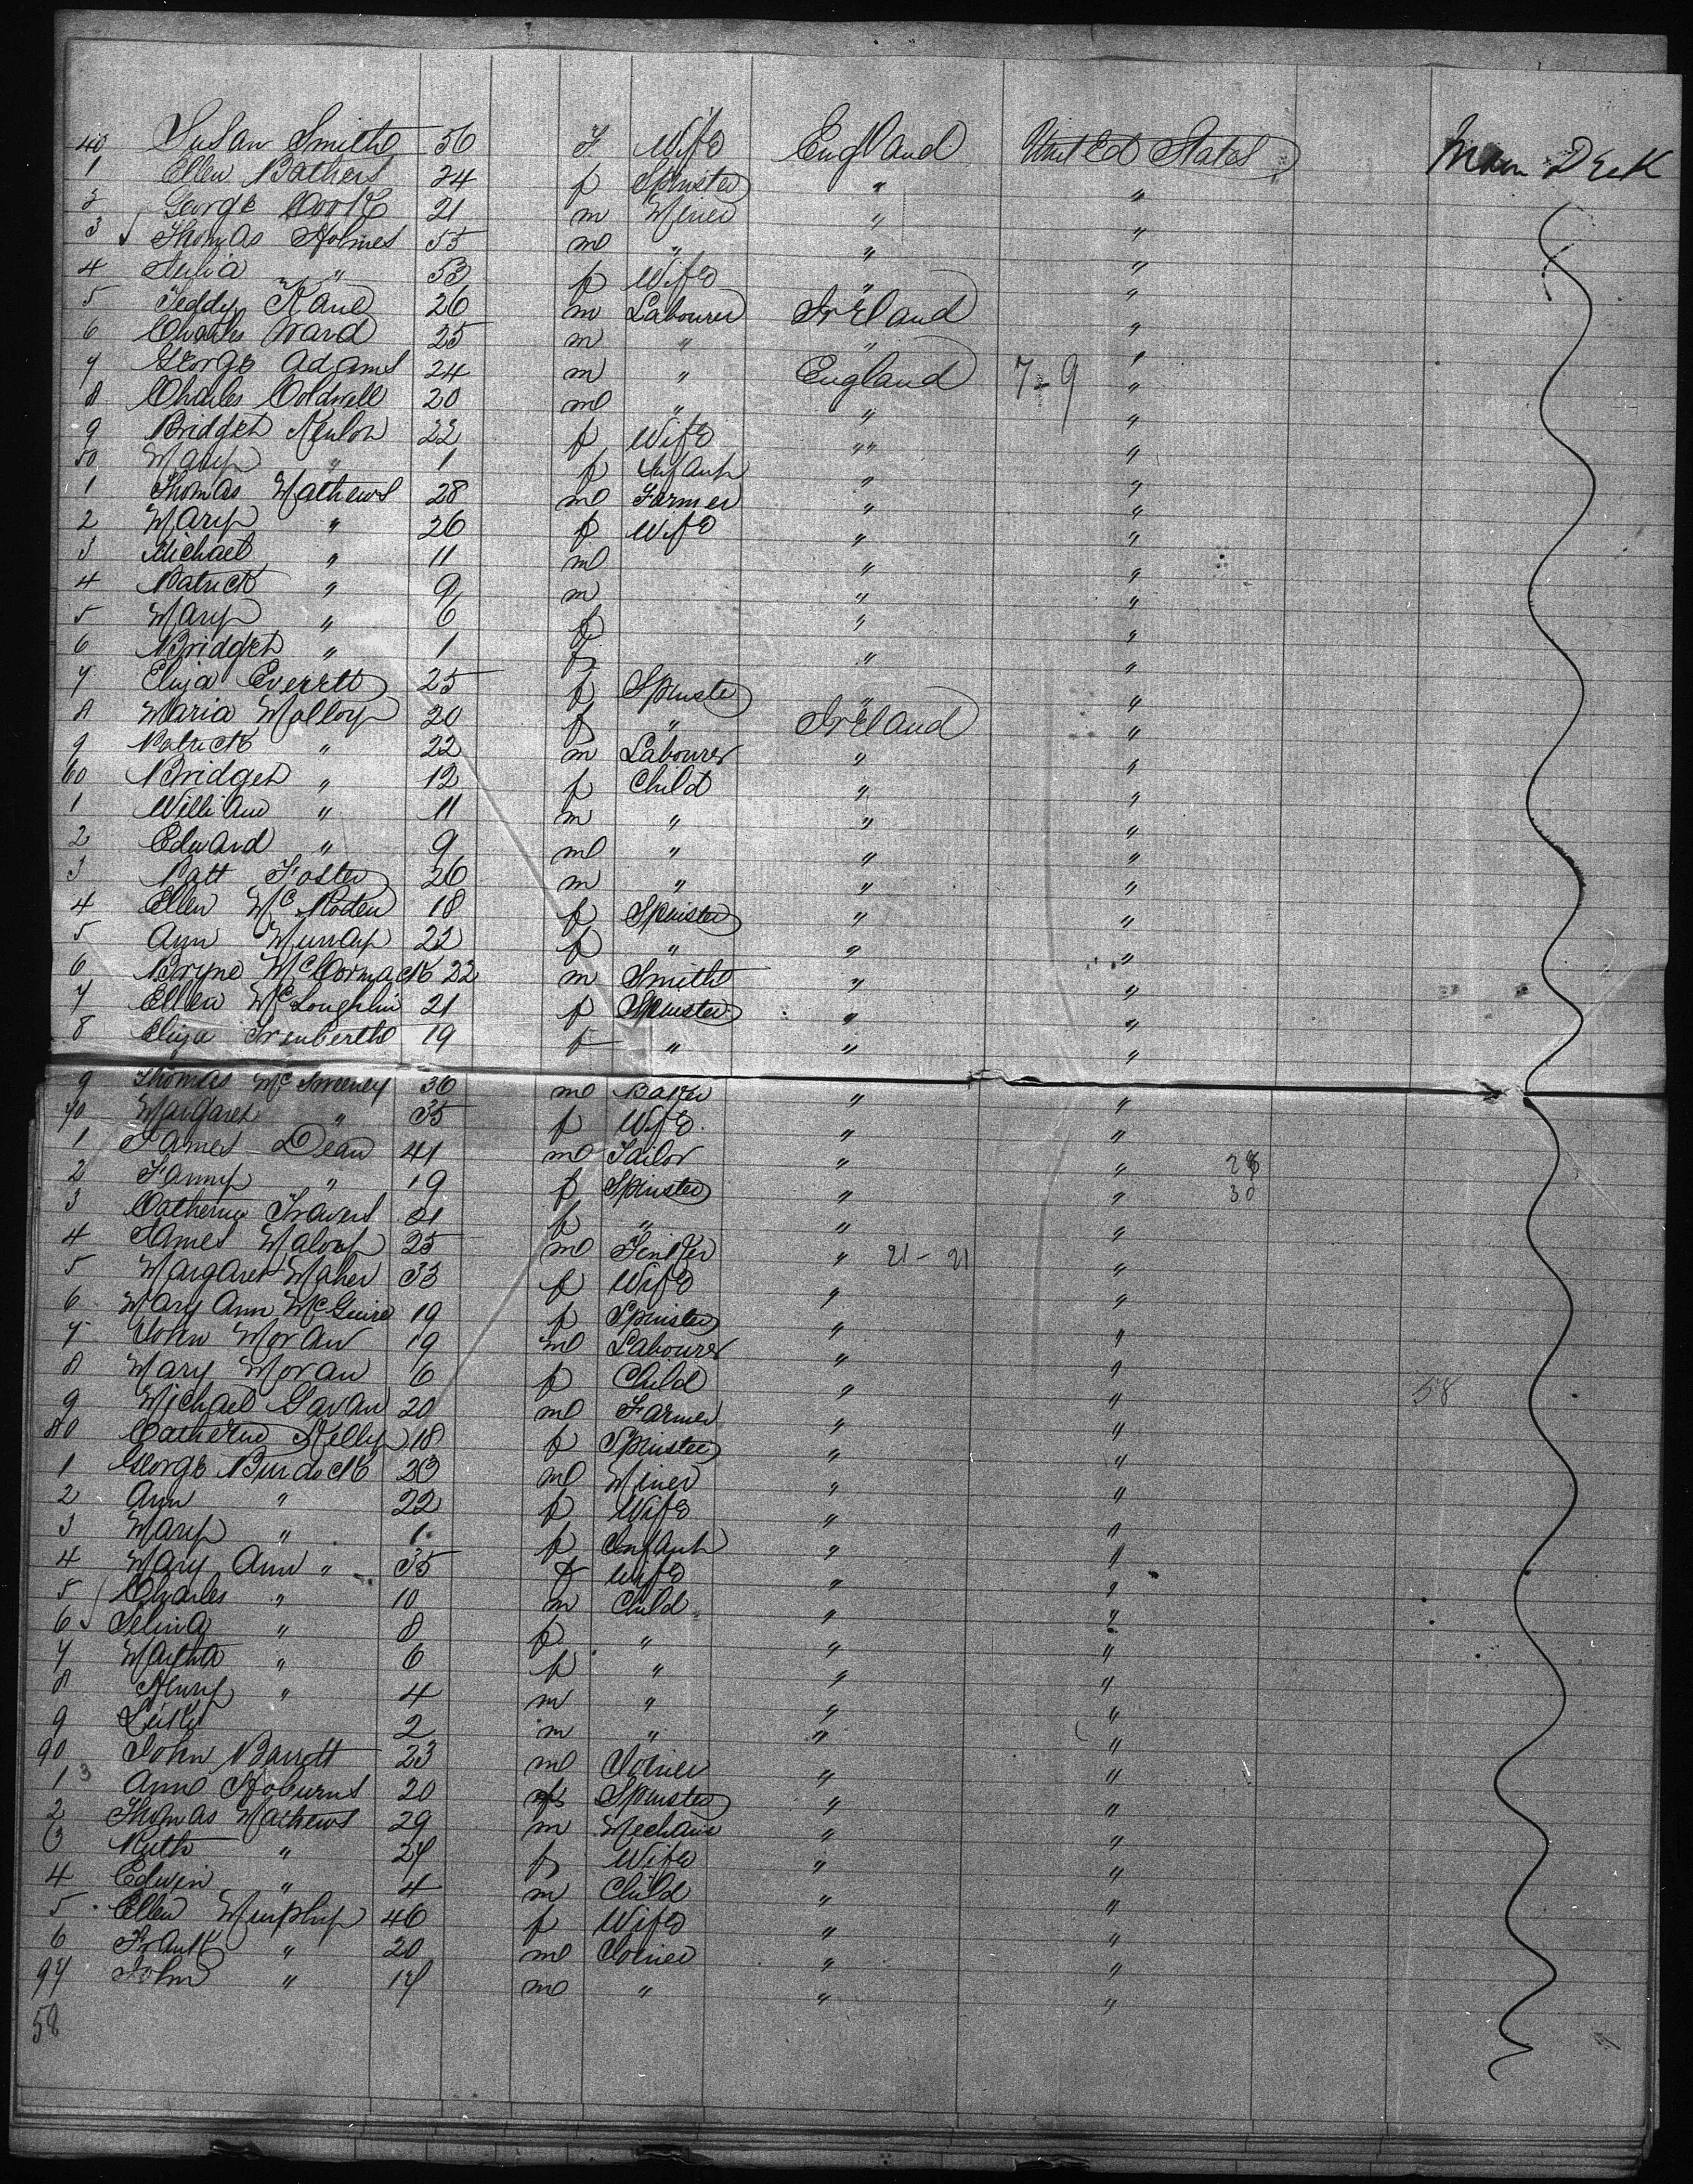 40 Susan Smith 56 F Wife England United States Main Deck
1 Ellen Bathers 24 f Spinster " "
2 George Cook 21 m Miner " "
3 Thomas Holmes 55 m " " "
4 Julia " 53 f Wife " "
5 Teddy Kane 26 m Labourer Ireland "
6 Charles Ward 25 m " " "
7 George Adams 24 m " England 7-9 "
8 Charles Coldwell 20 m " " "
9 Bridget 22 f Wife " " "
50 Mary " 1 f Infant " "
1 Thomas Mathews 28 m Farmer " "
2 Mary " 26 f Wife " "
3 Michael " 11 m " "
4 Patrick " 9 m " "
5 Mary " 6 f " "
6 Bridget " 1 f " "
7 Eliza Everett 25 f Spinster " "
8 Maria Molloy 20 f " Ireland "
9 Patrick " 22 m Labourer " "
60 Bridget " 12 f Child " "
1 William " 11 m " " "
2 Edward " 9 m " " "
3 Patt Foster 26 m " " "
4 Ellen 18 f Spinster " "
5 Ann Murray 22 f " " "
6 Bryne McCormack 22 m Smith " "
7 Ellen McLoughlin 21 f Spinster " "
8 Eliza 19 f " " "
9 Thomas McSweeney 36 m Baker " "
70 Margaret " 35 f Wife " "
1 James Dean 41 m Tailor " "
2 Fanny " 19 f Spinster " " 30
3 Catherine Travers 21 f " " "
4 James 25 m " 21-21 "
5 Margaret Maher 33 f Wife " "
6 Mary Ann McGuire 19 f Spinster " "
7 John Moran 19 m Labourer " "
8 Mary Moran 6 f Child " " 58
9 Michael Gavan 20 m Farmer " "
80 Catherine Kelly 18 f Spinster " "
1 George Burdock 23 m Miner " "
2 Ann " 22 f Wife " "
3 Mary " 1 f Infant " "
4 Mary Ann " 35 f Wife " "
5 Charles " 10 m Child " "
6 Selina " 8 f " " "
7 Martha " 6 f " " "
8 Henry " 4 m " " "
9 Luke 2 m " " "
90 John Barrott 23 m Joiner " "
1 3 Anne Hoburns 20 f Spinster " "
2 Thomas Mathews 29 m Mechanic " "
3 Ruth " 27 f Wife " "
4 Edwin " 4 m Child " "
5 Ellen Murphy 46 f Wife " "
6 Frank " 20 m Joiner " "
97 John " 17 m " " "
58